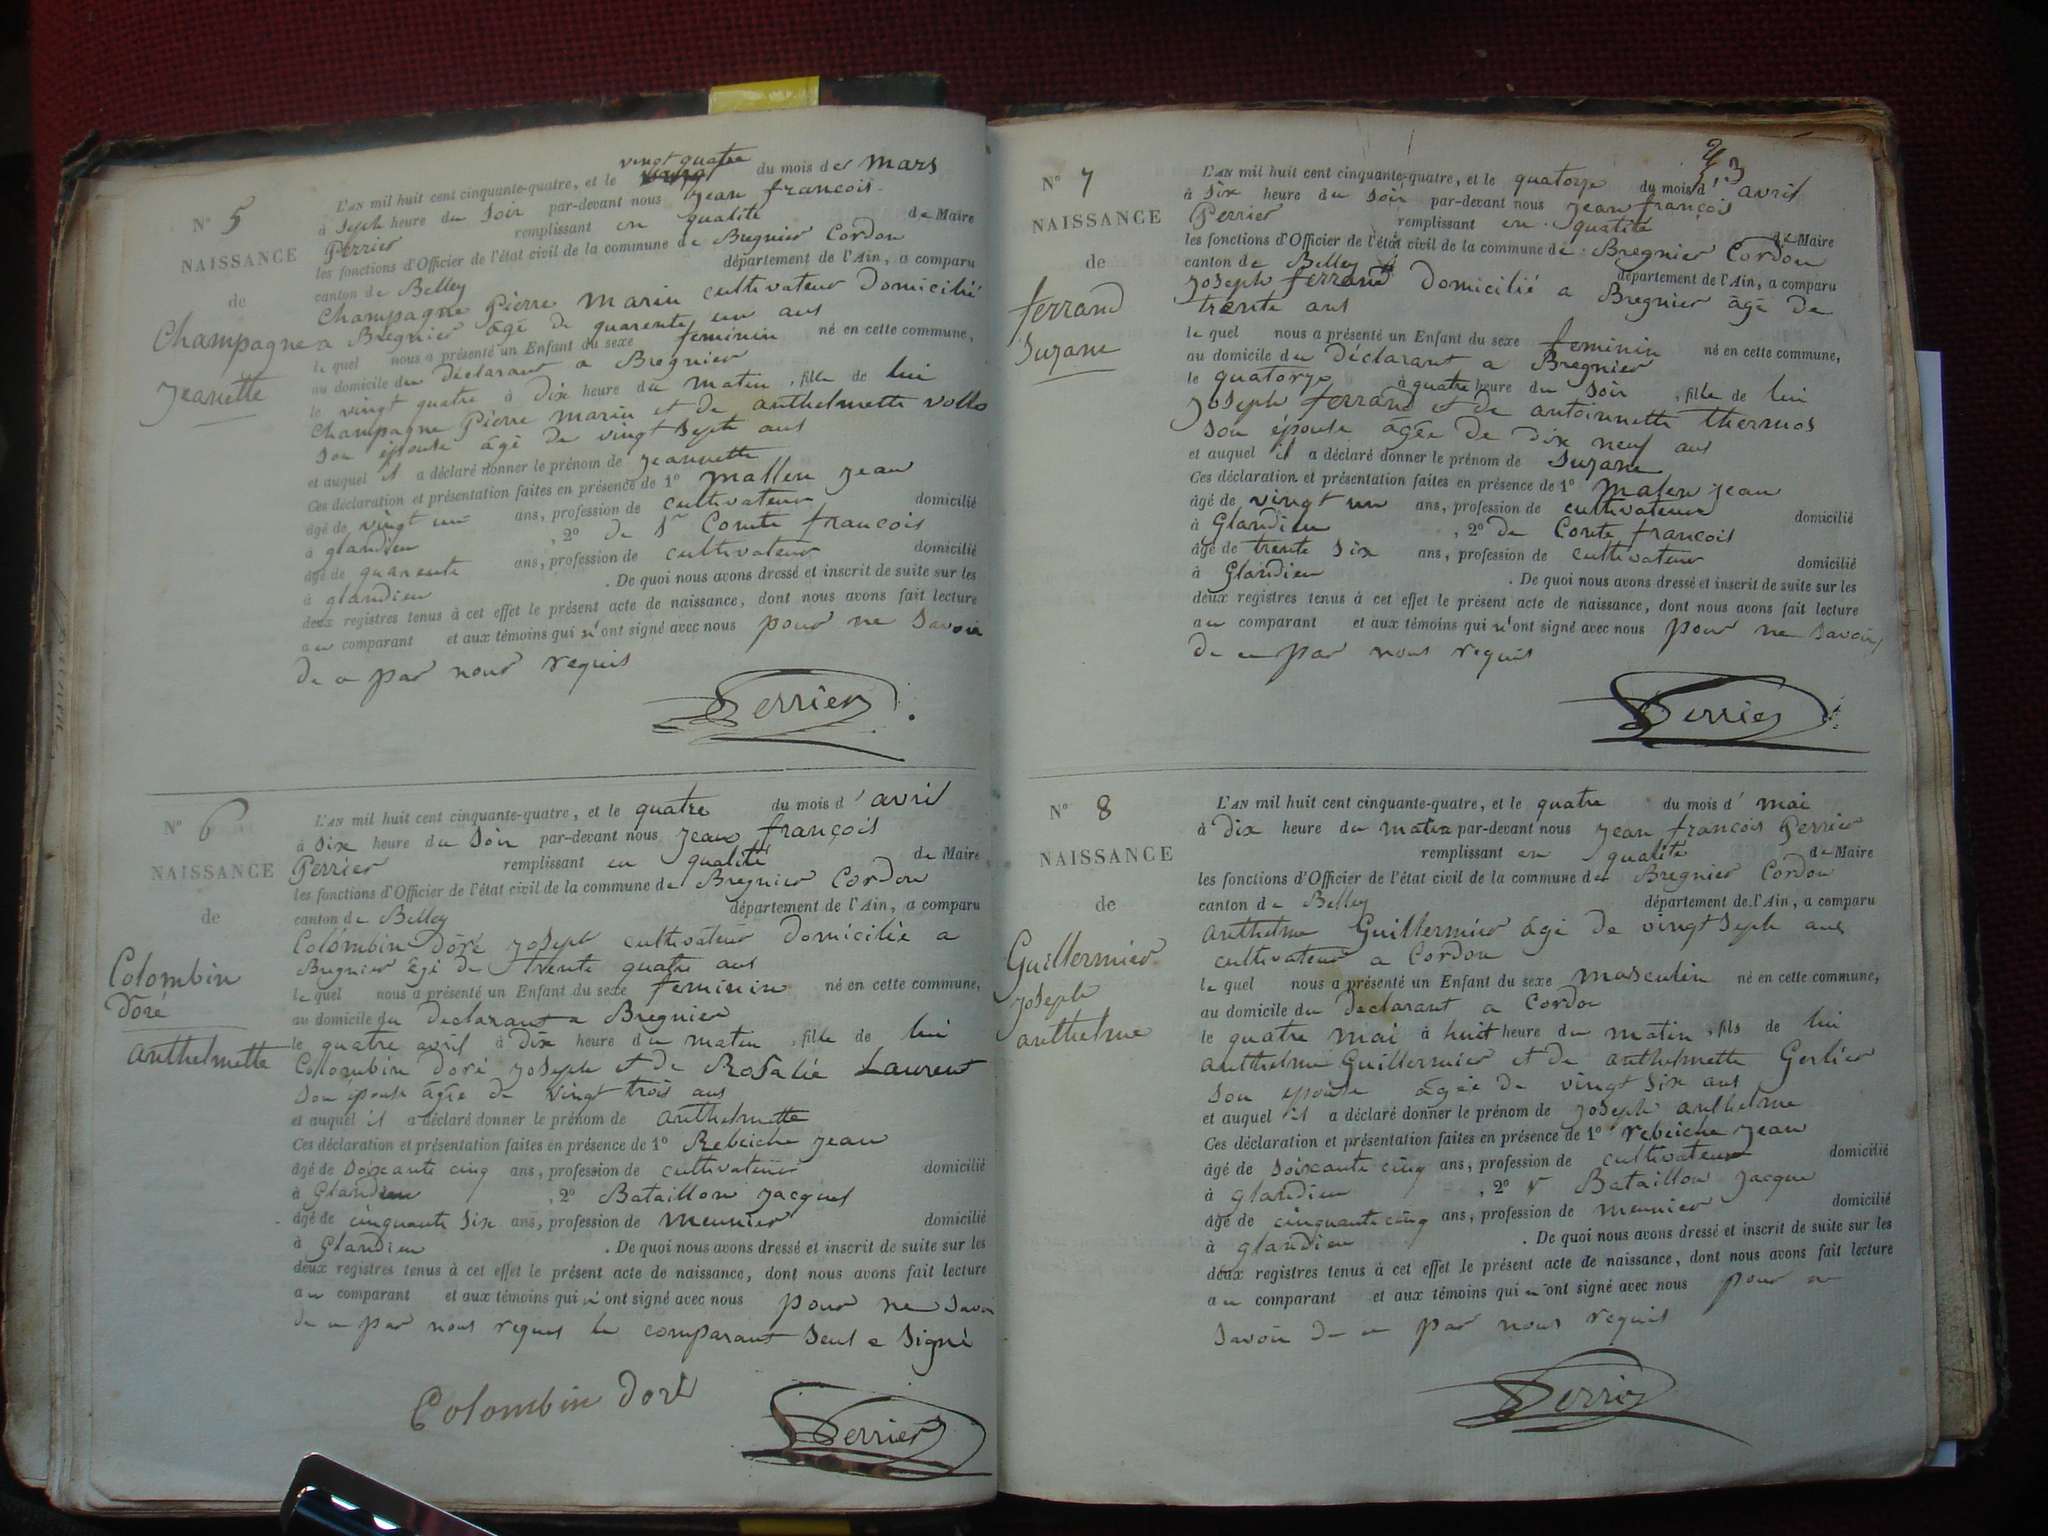 N° 5
NAISSANCE
de
Champagne
Jeanette
L'AN mil huit cent cinquante-quatre, et le vingt quatre du mois de mars
à Sept heure du Soir par-devant nous Jean françois
Perrier remplissant en qualité de Maire
les fonctions d'Officier de l'état civil de la commune de Bregnier Cordon
canton de Belley département de l'Ain, a comparu
Champagne Pierre Marin cultivateur Domicilié
a Bregnier âgé de quarente un ans
le quel nous a présenté un Enfant du sexe feminin né en cette commune,
au domicile du déclarant a Bregnier
le vingt quatre à dix heure du matin, fille de lui
Champagne Pierre Marin et de anthelmette
Son épouse âgé de vingt Sept ans
et auquel il a déclaré donner le prénom de Jeannette
Ces déclaration et présentation faites en présence de 1° Mallen Jean
âgé de vingt un ans, profession de cultivateur domicilié
à glandieu , 2° de Conte francois
âgé de quarente ans, profession de cultivateur domicilié
à glandieu . De quoi nous avons dressé et inscrit de suite sur les
deux registres tenus à cet effet le présent acte de naissance, dont nous avons fait lecture
au comparant et aux témoins qui n'ont signé avec nous pour ne Savoir
de ce par nous requis
Perrier
N° 6
NAISSANCE
de
Colombin
doré
anthelmette
L'AN mil huit cent cinquante-quatre, et le quatre du mois d'avril
à Six heure du Soir par-devant nous Jean françois
Perrier remplissant en qualité de Maire
les fonctions d'Officier de l'état civil de la commune de Bregnier Cordon
canton de Belley département de l'Ain, a comparu
Colombin doré Joseph cultivateur domicilié a
Bregnier âgé de trente quatre ans
le quel nous a présenté un Enfant du sexe feminin né en cette commune,
au domicile du declarant a Bregnier
le quatre avril à dix heure du matin, fille de lui
Colombin doré Joseph et de Rosalie Laurent
Son épouse âgée de vingt trois ans
et auquel il a déclaré donner le prénom de anthelmette
Ces déclaration et présentation faites en présence de 1° Rebeiche Jean
âgé de Soixante cinq ans, profession de cultivateur domicilié
à Glandieu , 2° Bataillon Jacques
âgé de cinquante Six ans, profession de meunier domicilié
à Glandieu . De quoi nous avons dressé et inscrit de suite sur les
deux registres tenus à cet effet le présent acte de naissance, dont nous avons fait lecture
au comparant et aux témoins qui n'ont signé avec nous pour ne Savoir
de ce par nous requis le comparant Seul a Signé
Colombin doré
Perrier
N° 7
NAISSANCE
de
ferrand
Suzane
L'AN mil huit cent cinquante-quatre, et le quatorze du mois d'avril
à Six heure du Soir par-devant nous Jean françois
Perrier remplissant en qualité de Maire
les fonctions d'Officier de l'état civil de la commune de Bregnier Cordon
canton de Belley département de l'Ain, a comparu
Joseph ferrand Domicilié a Bregnier âgé de
trente ans
le quel nous a présenté un Enfant du sexe feminin né en cette commune,
au domicile du déclarant a Bregnier
le quatorze à quatre heure du Soir, fille de lui
Joseph ferrand et de antoinnette thermos
Son épouse âgée de dix neuf ans
et auquel il a déclaré donner le prénom de Suzane
Ces déclaration et présentation faites en présence de 1° Malen Jean
âgé de vingt un ans, profession de cultivateur domicilié
à Glandieu , 2° de Conte francois
âgé de trente Six ans, profession de cultivateur domicilié
à Glandieu . De quoi nous avons dressé et inscrit de suite sur les
deux registres tenus à cet effet le présent acte de naissance, dont nous avons fait lecture
au comparant et aux témoins qui n'ont signé avec nous pour ne Savoir
de ce par nous requis
Perrier
N° 8
NAISSANCE
de
Guillermier
Joseph
anthelme
L'AN mil huit cent cinquante-quatre, et le quatre du mois d'mai
à dix heure du matin par-devant nous Jean francois Perrier
remplissant en qualité de Maire
les fonctions d'Officier de l'état civil de la commune de Bregnier Cordon
canton de Belley département de l'Ain, a comparu
anthelme Guillermier âgé de vingt Sept ans
cultivateur a Cordon
le quel nous a présenté un Enfant du sexe masculin né en cette commune,
au domicile du declarant a Cordon
le quatre mai à huit heure du matin, fils de lui
anthelme Guillermier et de anthelmette Gerlier
Son epouse âgée de vingt Six ans
et auquel il a déclaré donner le prénom de Joseph anthelme
Ces déclaration et présentation faites en présence de 1° rebeiche Jean
âgé de Soixante cinq ans, profession de cultivateur domicilié
à glandieu , 2° Bataillon Jacque
âgé de cinquante cinq ans, profession de meunier domicilié
à glandieu . De quoi nous avons dressé et inscrit de suite sur les
deux registres tenus à cet effet le présent acte de naissance, dont nous avons fait lecture
au comparant et aux témoins qui n'ont signé avec nous pour ne
Savoir de ce par nous requis
Perrier